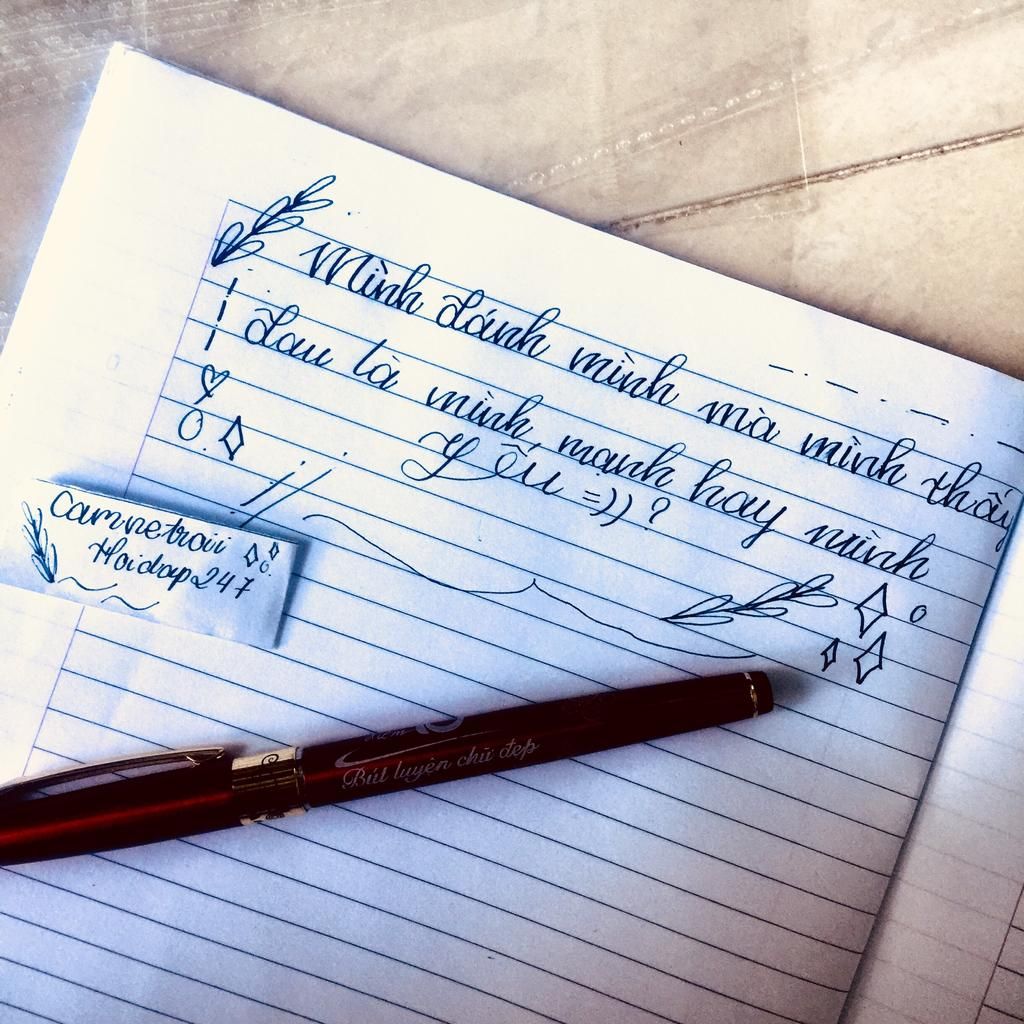 Mình đánh mình mà mình thấy
đau là mình mạnh hay mình
Yếu =)) ?
Camnetraii
Hoidap247
Bút luyện chữ đẹp